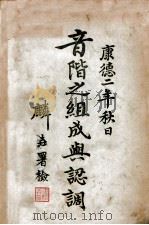 康德二年秋日
音階之組成與認調
麟 署檢